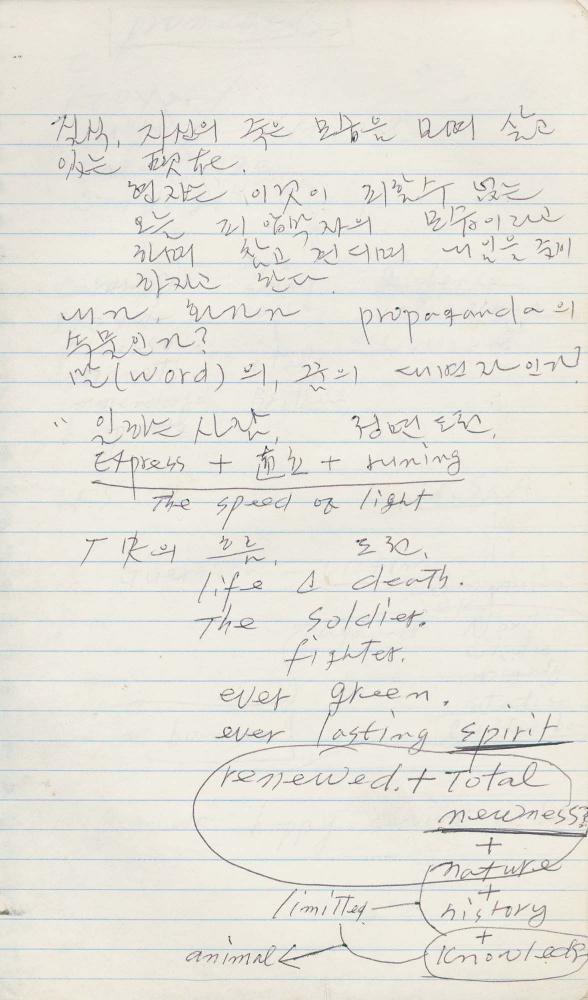 질식, 자신의 죽은 모습을 보며 살고
있는 現在.
현자는 이것이 피할수 없는
오늘 피 압박자의 모습이라고
하며 참고 견디며 내일을
하자고 한다
내가, 화가가 propaganda의
속물인가?
말(word)의, 끝의 대변자인가?
" 일하는 사람, 정면 도전,
Express + + runing
The speed of light
T 의 흐름, 도전,
life △ death.
The soldier.
fighter.
ever green.
ever lasting spirit
renewed. + Total
newness
+
nature
+
limitted history
+
animal Knowledg